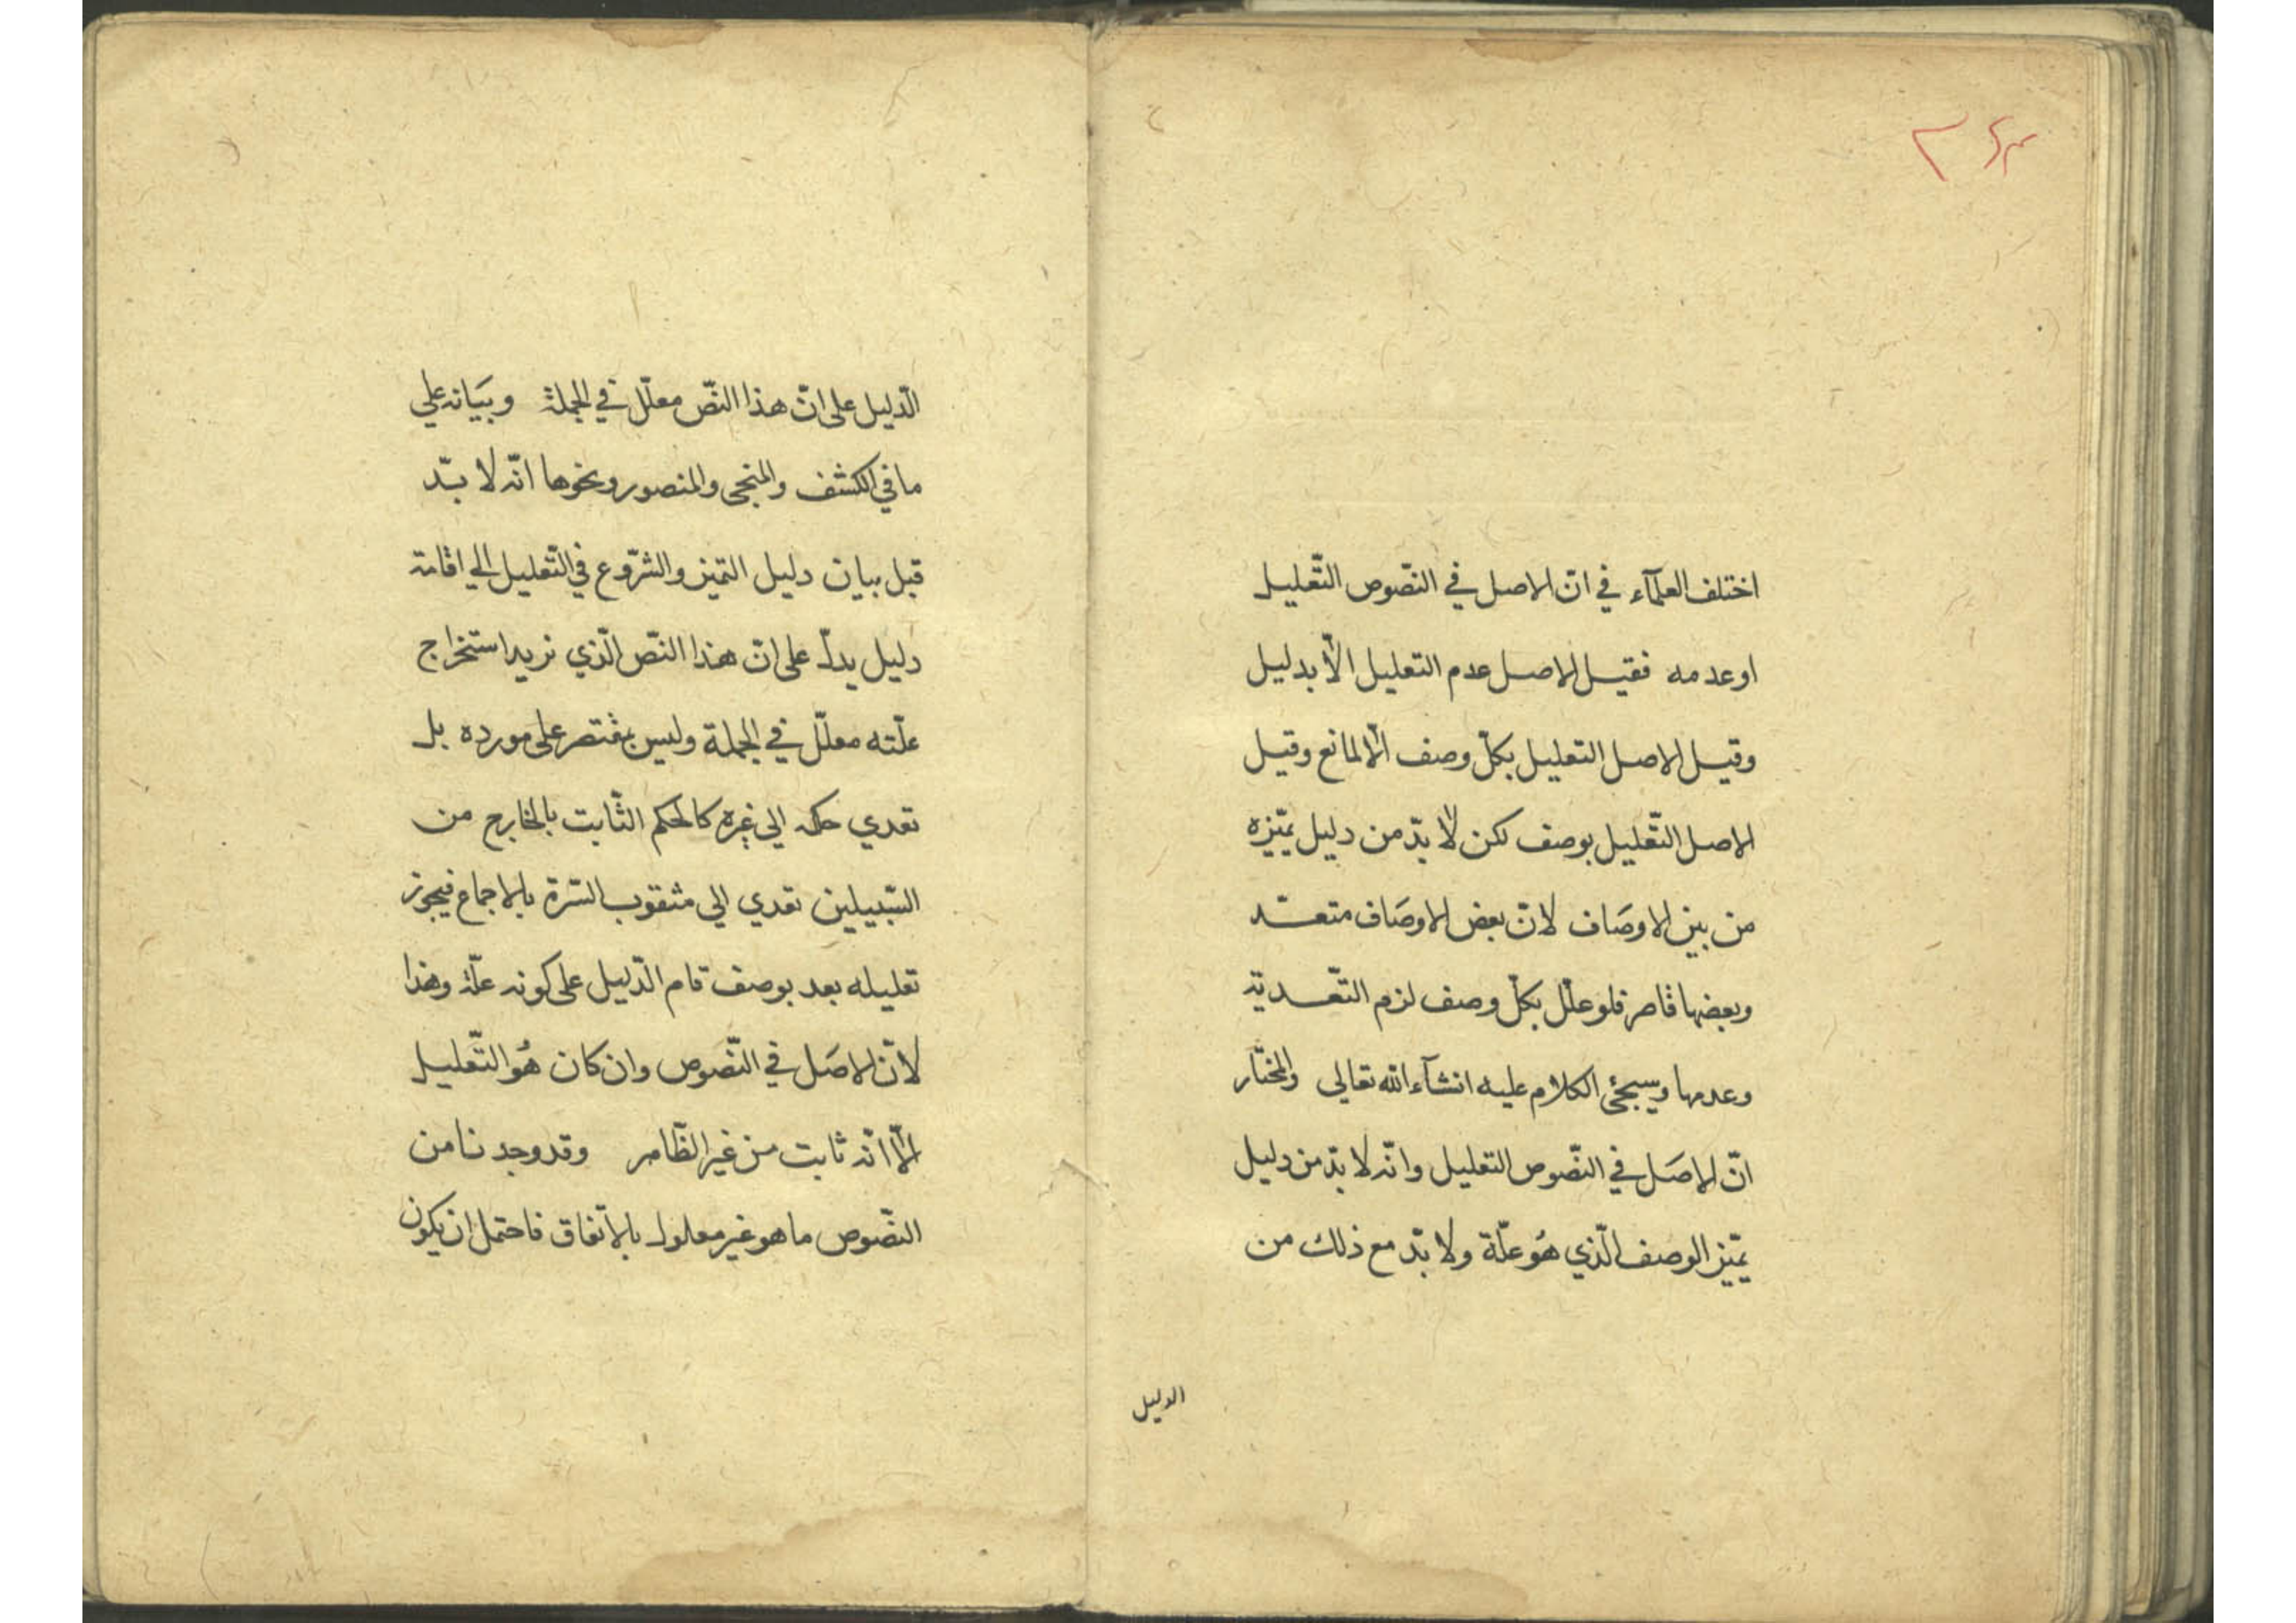 اختلف العلمآء في ان الاصل في النصّوص التّعليل
او عدمه فقيل الاصل عدم التعليل الّا بدليل
وقيل الاصل التعليل بكلّ وصف الّا لمانع وقيل
الاصل التّعليل بوصف لكن لا بدّ من دليل يميّزه
من بين الاوصَاف لانّ بعض الاوصَاف متعدّ
وبعضها قاصر فلو علّل بكلّ وصف لزم التّعدية
وعدمها وسيجئ الكلام عليه انشآء الله تعالى والمختار
انّ الاصَل في النصّوص التعليل وانّه لا بدّ من دليل
يميّز الوصف الّذي هُو علّة ولا بدّ مع ذلك من
الدليل
الدّليل على انّ هذا النصّ معلّل في الجملة وبيَانه على
ما في الكشف والمنجى والمنصور ونحوها انّه لا بدّ
قبل بيان دليل التميز والشرّوع في التّعليل الى اقامة
دليل يدلّ على انّ هذا النصّ الّذي نريد استخراج
علّته معلّل في الجملة وليس بمقتصر على مورده بل
تعدي حكمه الى غيره كالحكم الثّابت بالخارج من
السّبيلين تعدي الى مثقوب السّرة بالاجماع فيجوز
تعليله بعد بوصف قام الدّليل على كونه علّة وهذا
لانّ الاصَل في النّصوص وان كان هُو التّعليل
الّا انّه ثابت من غير الظّاهر وقد وجدنا من
النصّوص ما هو غير معلول بالاتّفاق فاحتمل ان يكون